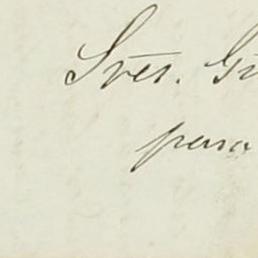 Sres. G
para